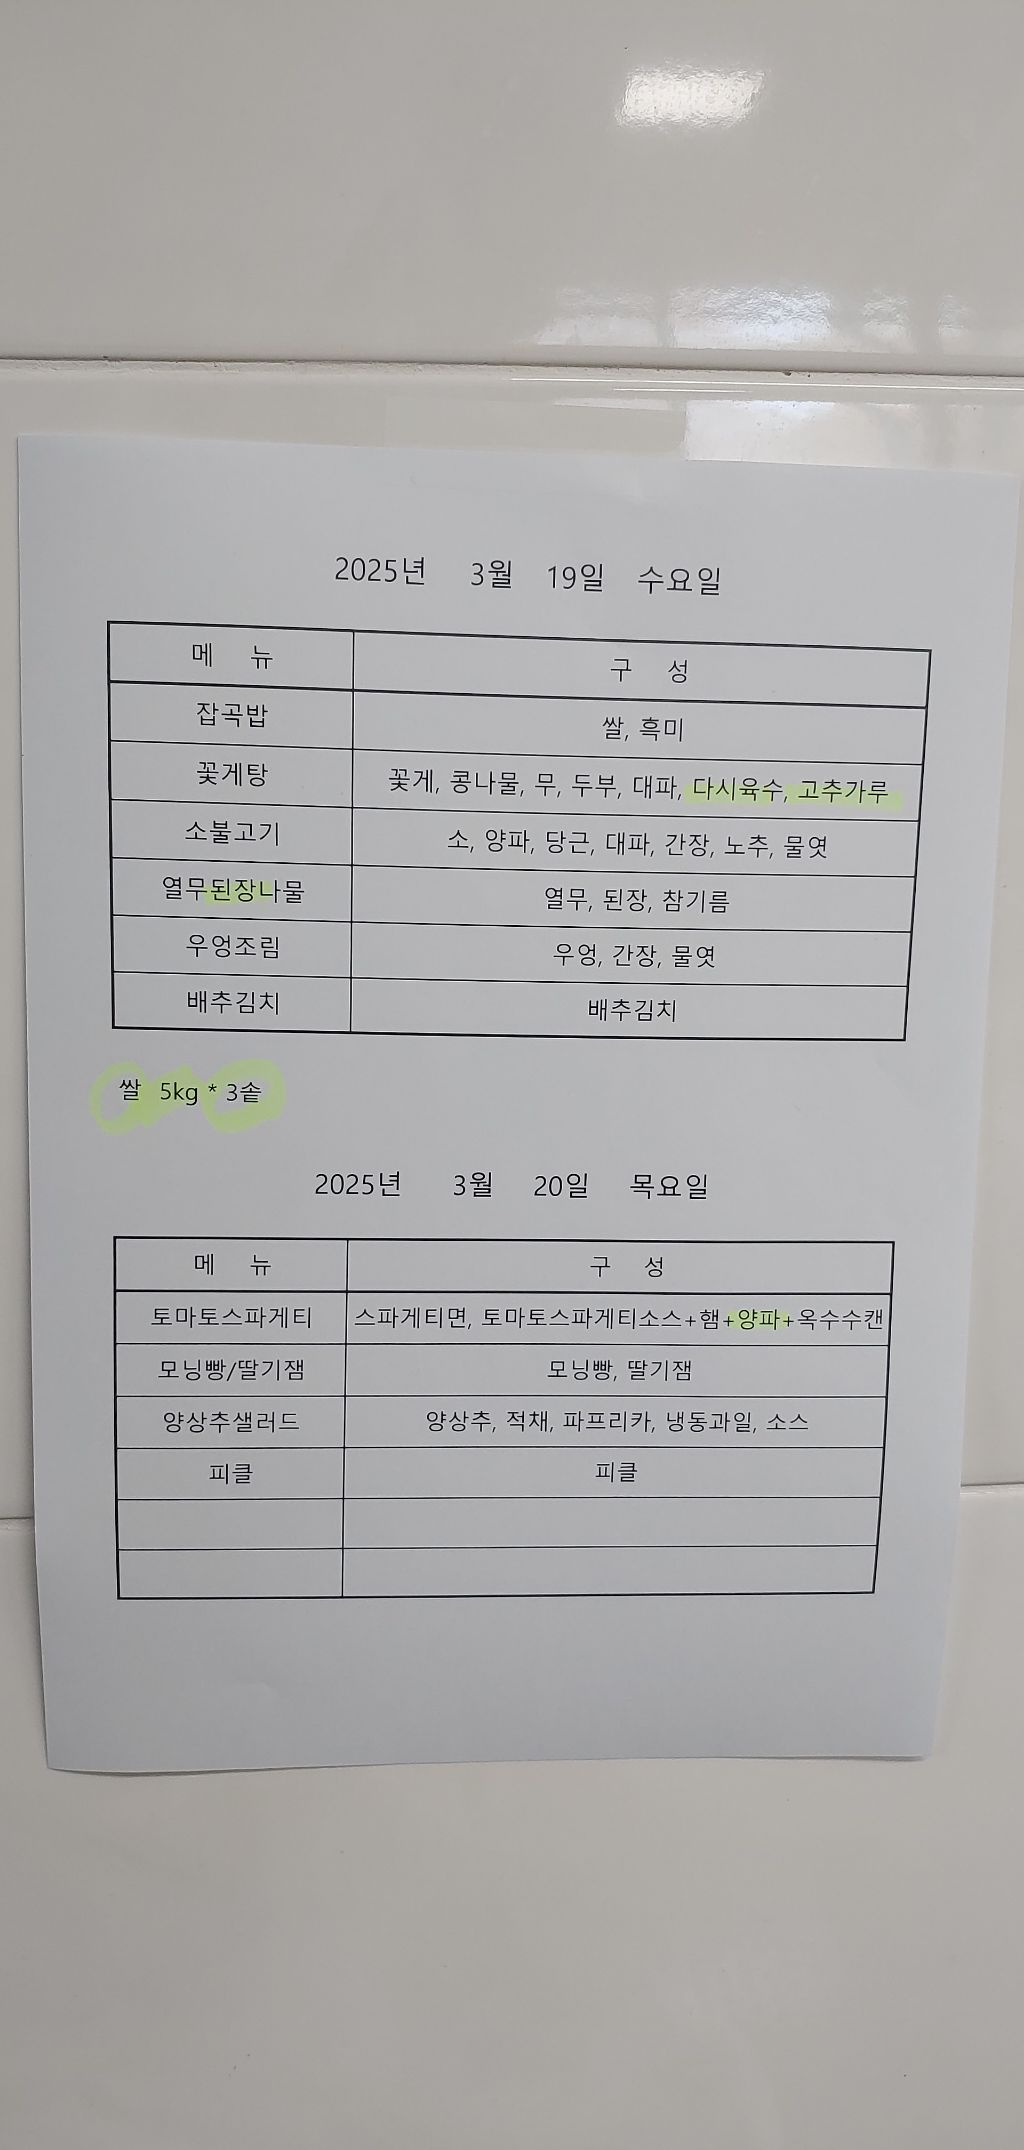 2025년 3월 19일 수요일
메 뉴 구 성
잡곡밥 쌀, 흑미
꽃게탕 꽃게, 콩나물, 무, 두부, 대파, 다시육수, 고추가루
소불고기 소, 양파, 당근, 대파, 간장, 노추, 물엿
열무된장나물 열무, 된장, 참기름
우엉조림 우엉, 간장, 물엿
배추김치 배추김치
쌀 5kg * 3솥
2025년 3월 20일 목요일
메 뉴 구 성
토마토스파게티 스파게티면, 토마토스파게티소스+햄+양파+옥수수캔
모닝빵/딸기잼 모닝빵, 딸기잼
양상추샐러드 양상추, 적채, 파프리카, 냉동과일, 소스
피클 피클